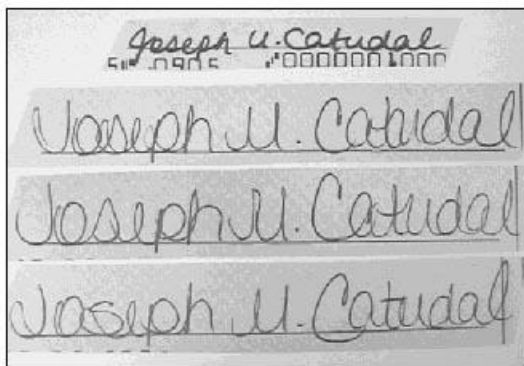 Joseph U. Catudal
0905 "000000 1000
Joseph U. Catudal
Joseph U. Catudal
Joseph U. Catudal